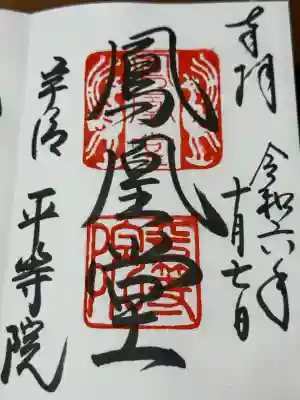 奉拝
令和六年
十月七日
鳳凰堂
宇治
平等院
平等院